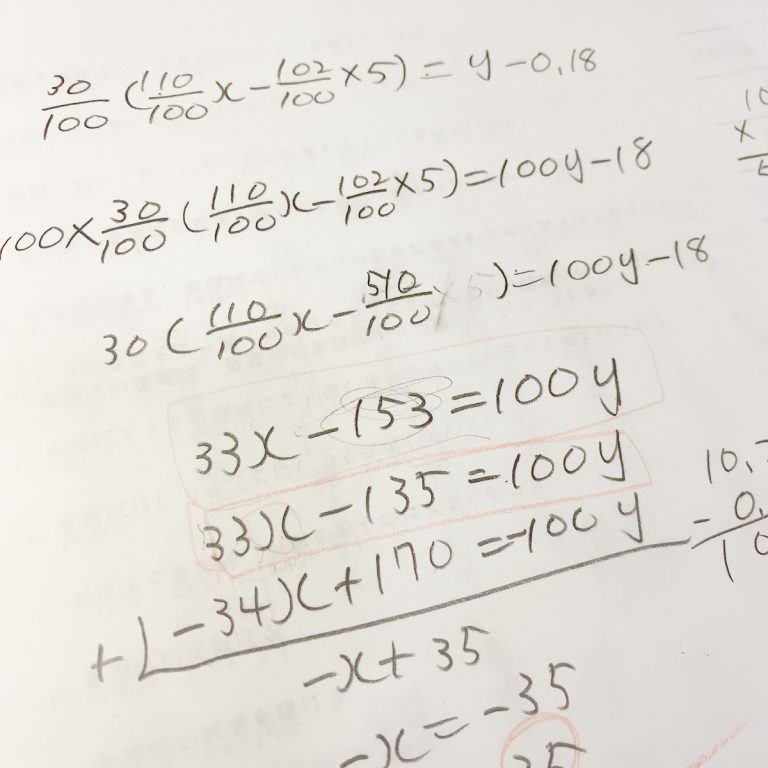 30/100 (110/100 x - 102/100 × 5) = y - 0.18
100 × 30/100 (110/100 x - 102/100 × 5) = 100y - 18
30 (110/100 x - 510/100) = 100y - 18
33x - 153 = 100y
33x - 135 = 100y
+) -34x + 170 = -100y
-x + 35
-x = -35